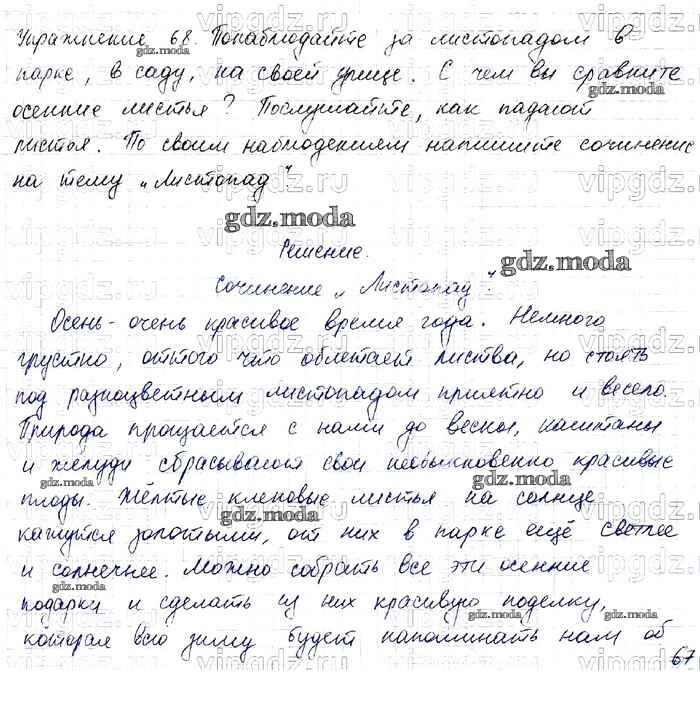 Упражнение 68. Понаблюдайте за листопадом в
парке, в саду, на своей улице. С чем вы сравните
осенние листья? Послушайте, как падают
листья. По своим наблюдениям напишите сочинение
на тему „Листопад".
gdz.moda
Решение.
Сочинение „Листопад".
Осень - очень красивое время года. Немного
грустно, оттого что облетает листва, но стоять
под разноцветным листопадом приятно и весело.
Природа прощается с нами до весны, каштаны
и жёлуди сбрасывают свои необыкновенно красивые
плоды. Жёлтые кленовые листья на солнце
кажутся золотыми, от них в парке ещё светлее
и солнечнее. Можно собрать все эти осенние
подарки и сделать из них красивую поделку,
которая всю зиму будет напоминать нам об
67